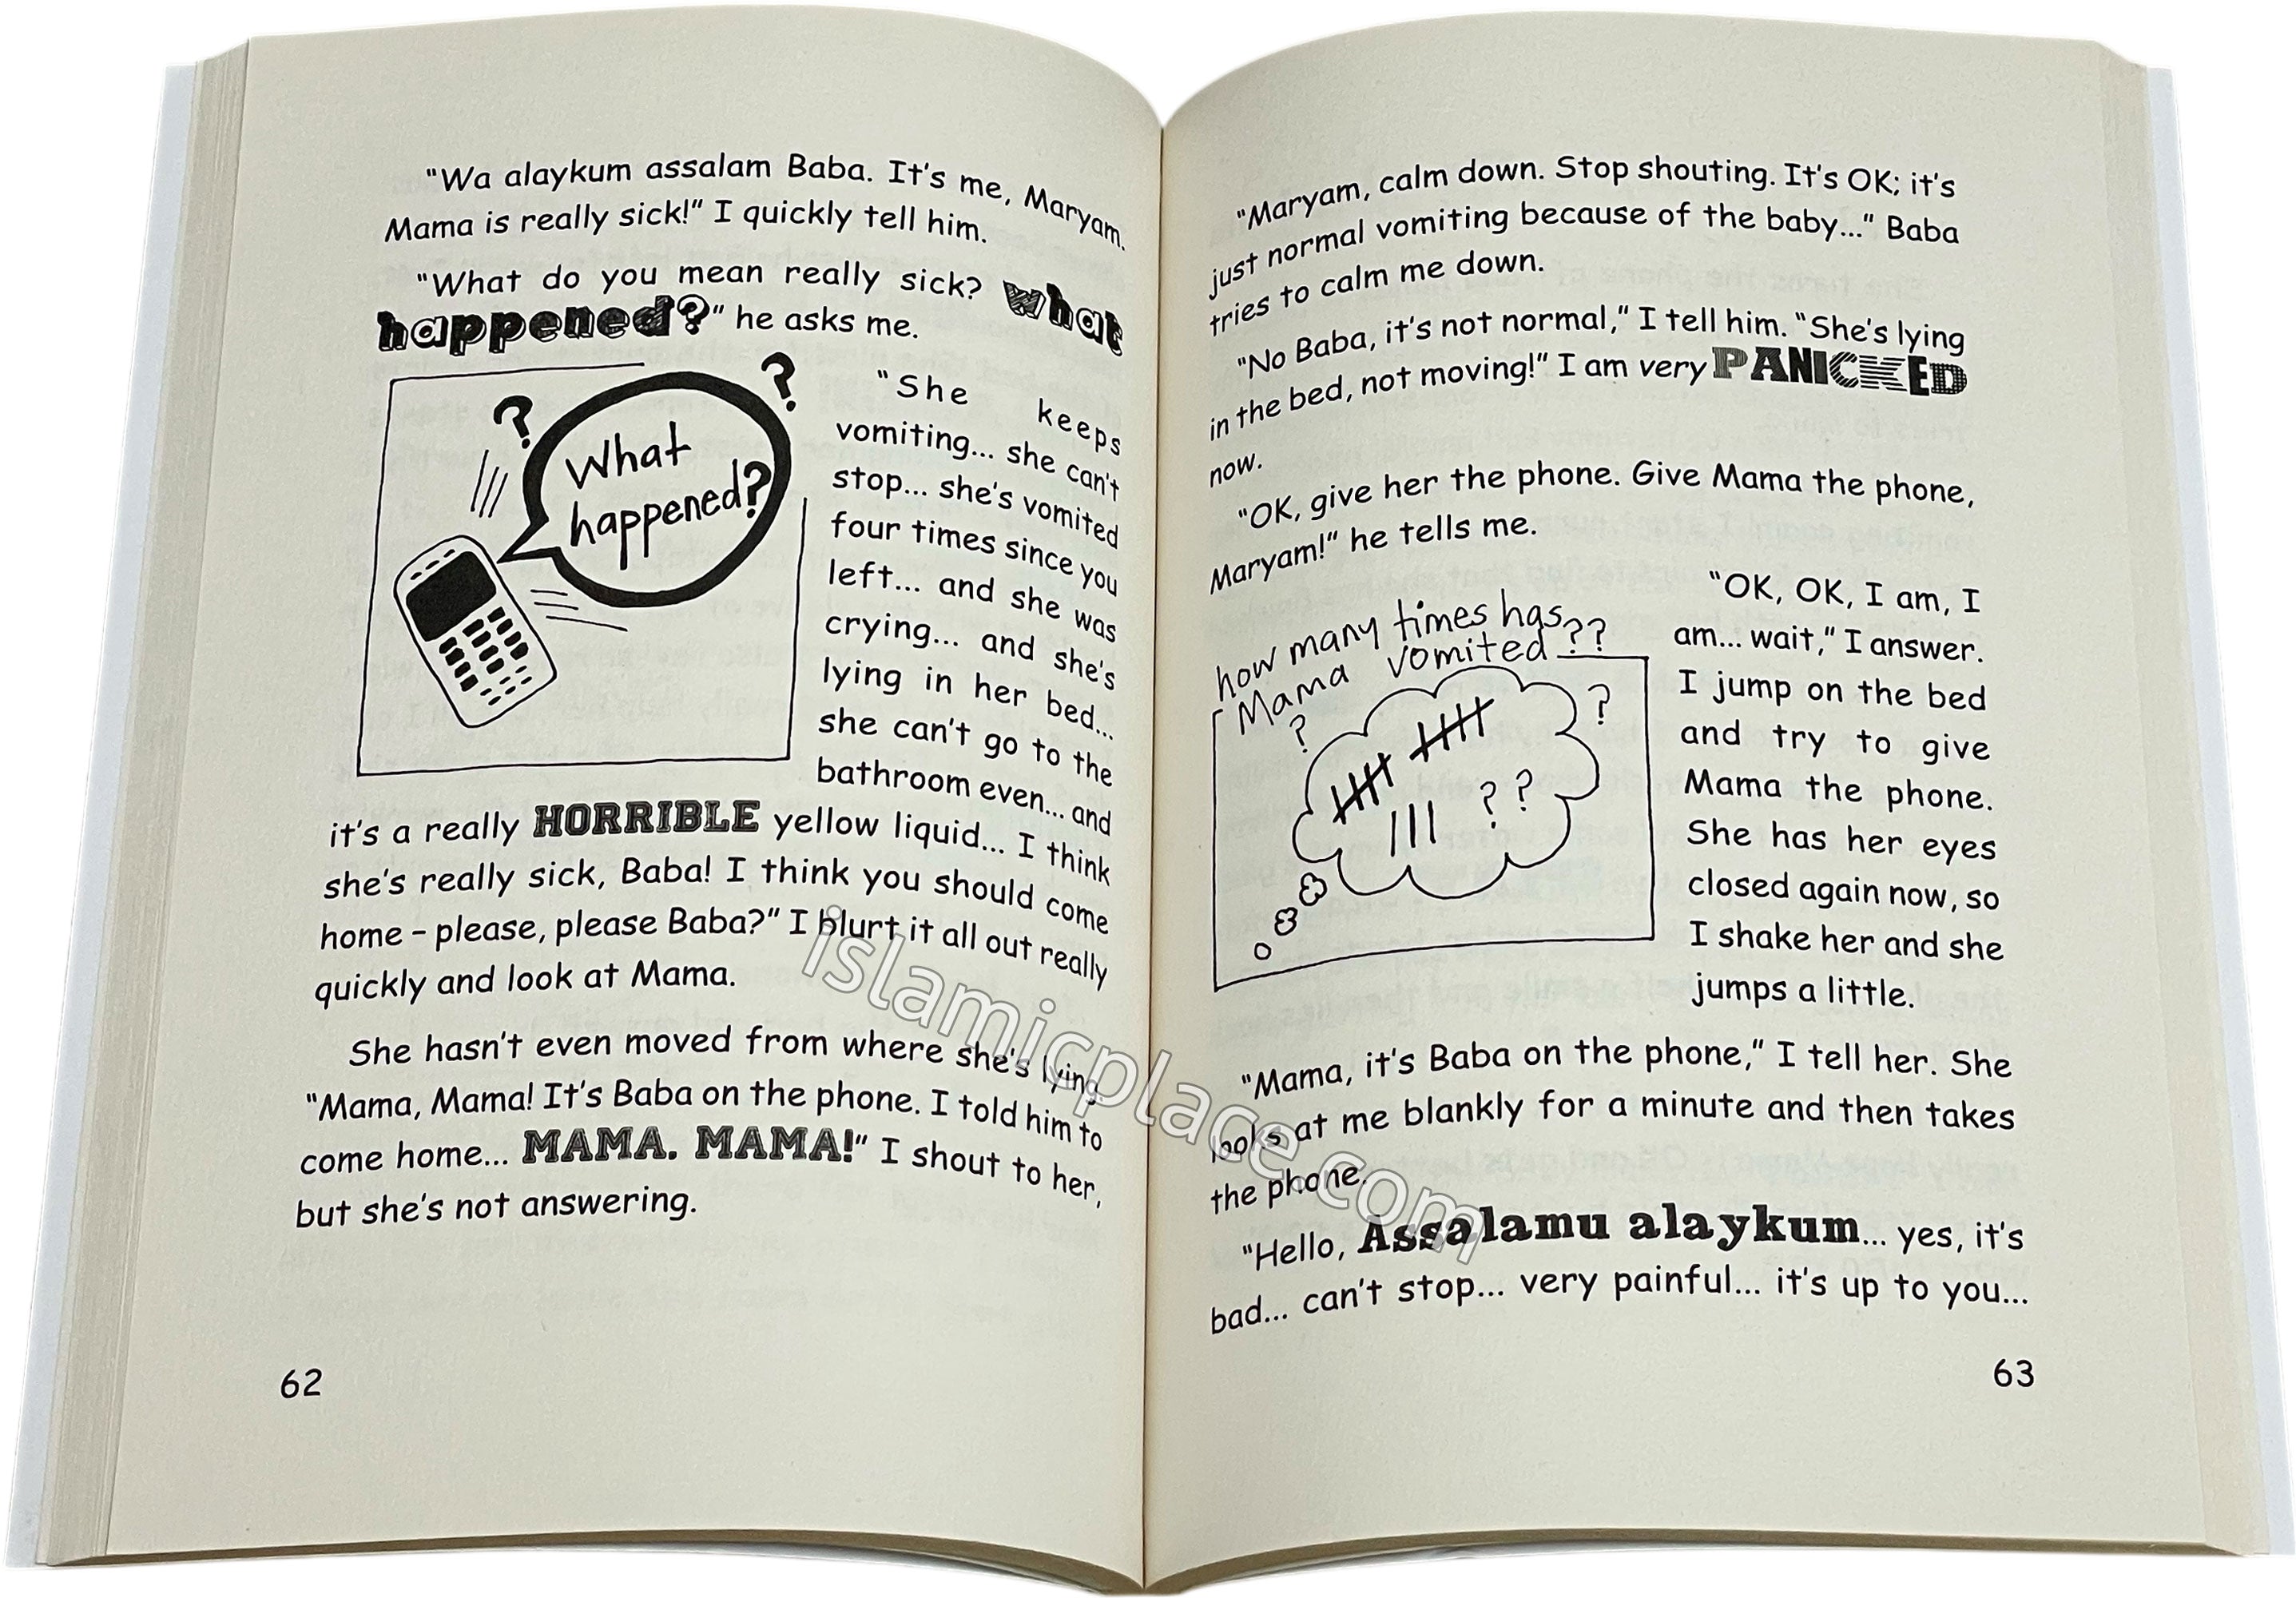 "Wa alaykum assalam Baba. It's me, Maryam.
Mama is really sick!" I quickly tell him.
"What do you mean really sick? What
happened?" he asks me.
What
happened?
? ?
"She keeps
vomiting... she can't
stop... she's vomited
four times since you
left... and she was
crying... and she's
lying in her bed...
she can't go to the
bathroom even... and
it's a really HORRIBLE yellow liquid... I think
she's really sick, Baba! I think you should come
home – please, please Baba?" I blurt it all out really
quickly and look at Mama.
She hasn't even moved from where she's lying.
"Mama, Mama! It's Baba on the phone. I told him to
come home... MAMA. MAMA!" I shout to her,
but she's not answering.
62
"Maryam, calm down. Stop shouting. It's OK; it's
just normal vomiting because of the baby..." Baba
tries to calm me down.
"No Baba, it's not normal," I tell him. "She's lying
in the bed, not moving!" I am very PANICKED
now.
"OK, give her the phone. Give Mama the phone,
Maryam!" he tells me.
how many times has
Mama vomited??
? ?
? ?
"OK, OK, I am, I
am... wait," I answer.
I jump on the bed
and try to give
Mama the phone.
She has her eyes
closed again now, so
I shake her and she
jumps a little.
"Mama, it's Baba on the phone," I tell her. She
looks at me blankly for a minute and then takes
the phone.
"Hello, Assalamu alaykum... yes, it's
bad... can't stop... very painful... it's up to you...
63
islamicplace.com